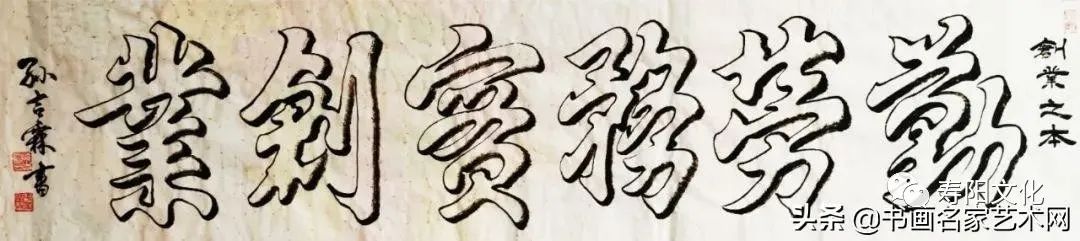 創業之本
勤勞務實創業
孙吉霖書
寿阳文化
头条 @书画名家艺术网